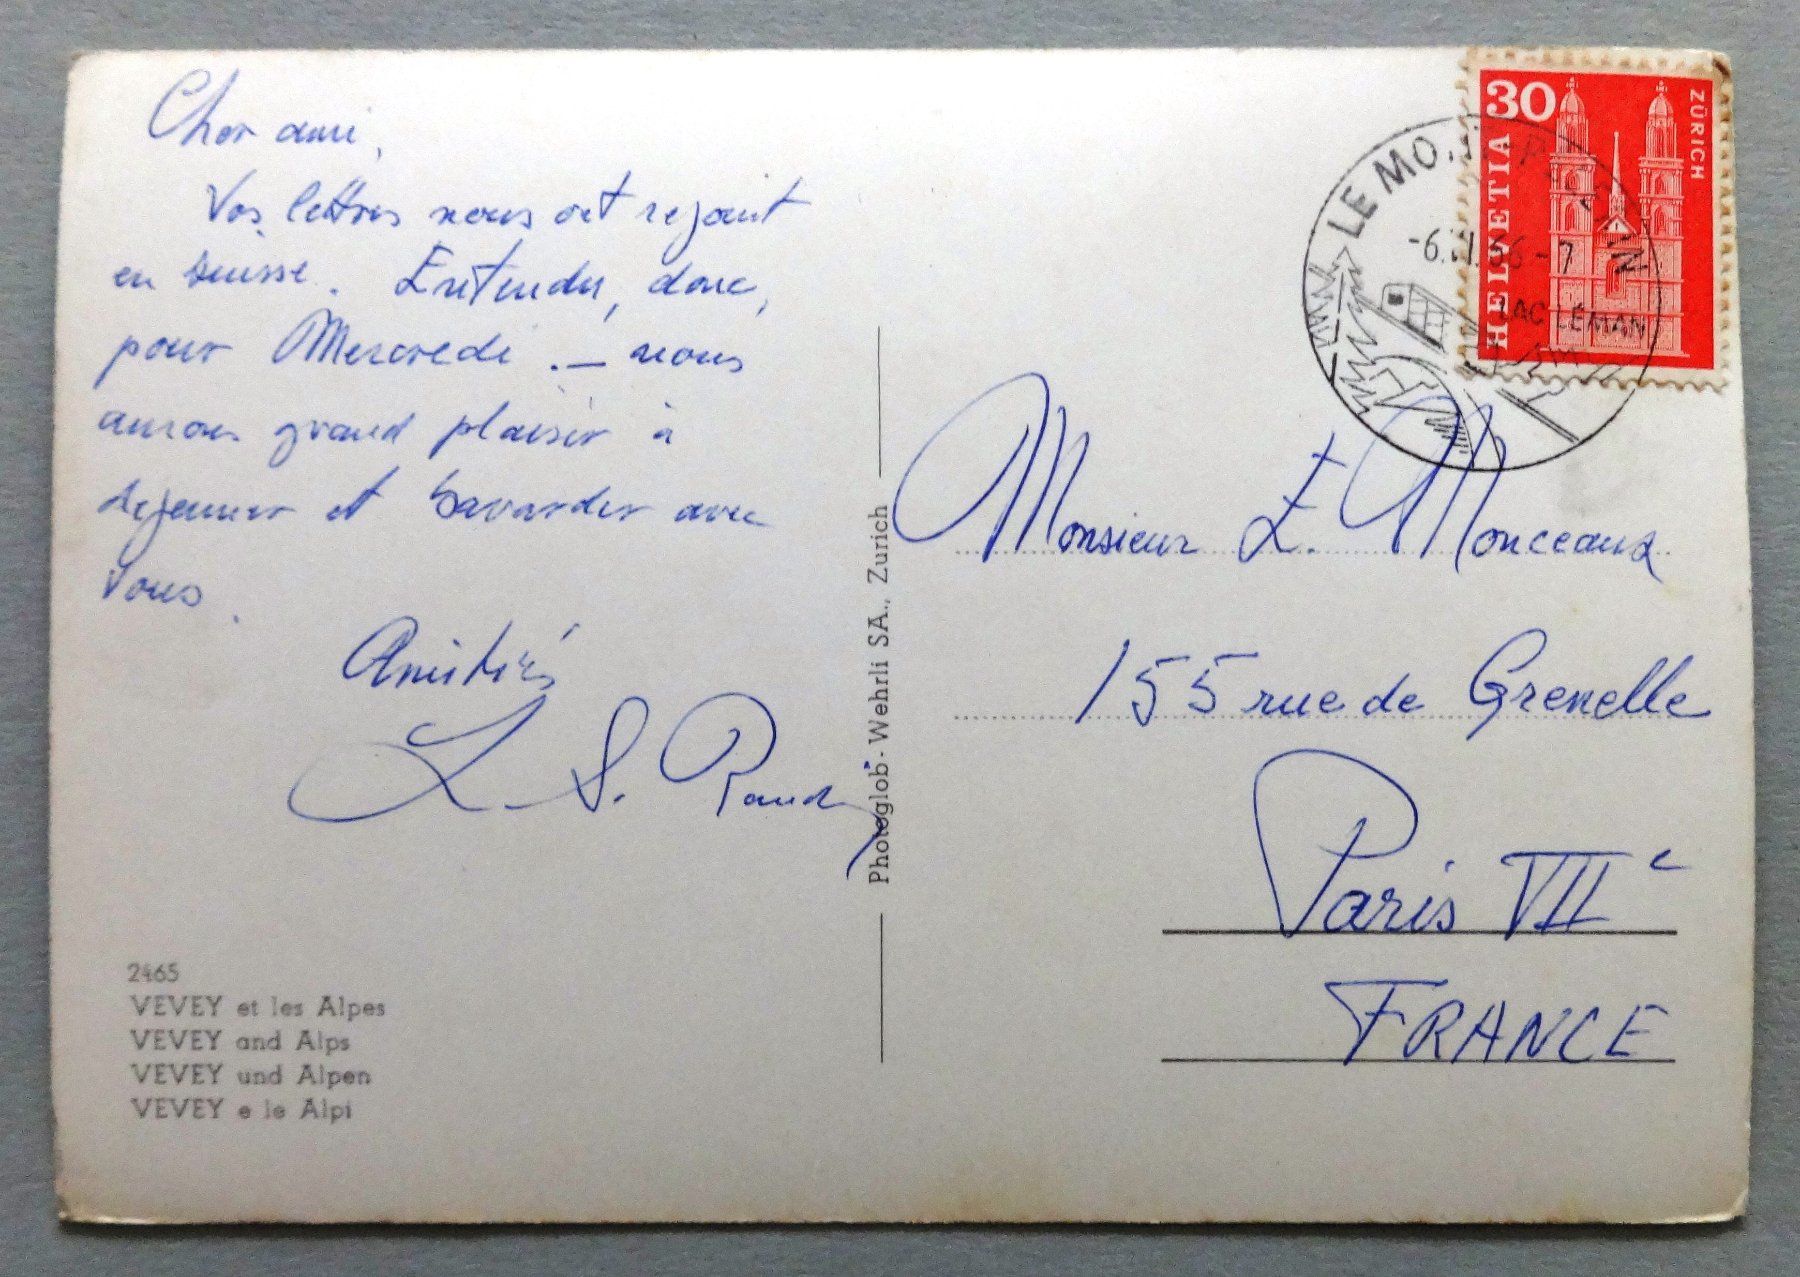 Cher ami,
Vos lettres nous ont rejoint
en Suisse. Entendu, donc,
pour Mercredi. — nous
aurons grand plaisir à
dejeuner et bavarder avec
vous.
Amitiés
L. S.
2465
VEVEY et les Alpes
VEVEY and Alps
VEVEY und Alpen
VEVEY e le Alpi
Photoglob - Wehrli SA., Zurich
30
HELVETIA
ZÜRICH
LE
LAC LÉMAN
Monsieur E. Monceaux
155 rue de Grenelle
Paris VIIe
FRANCE